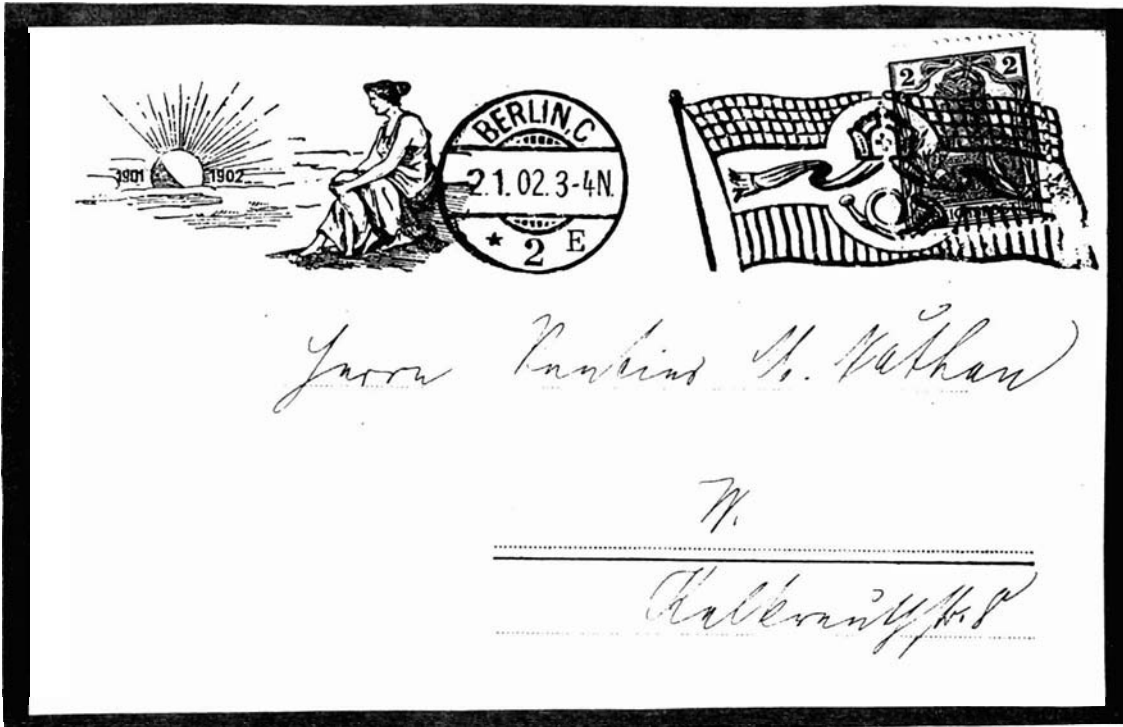 1901 1902
BERLIN, C
2.1.02.3-4N.
* 2 E
2 2
Herrn Rentier M. Nathan
W.
Kalkreuthstr. 8